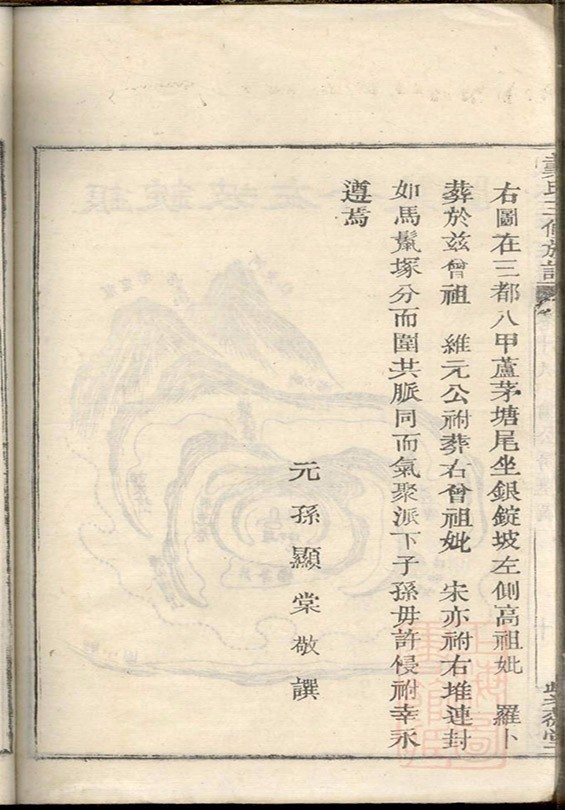 右圖在三都八甲蘆茅塘尾坐銀錠坡左側高祖妣 羅卜
葬於兹曾祖 維元公祔葬右曾祖妣 朱亦祔右堆連封
如馬鬣塚分而圍共脈同而氣聚派下子孫毋許侵祔幸永
遵焉
元孫顯棠敬譔